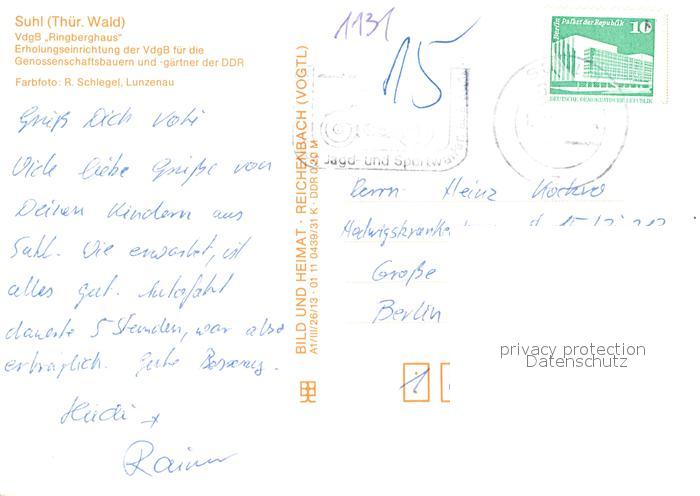 Suhl (Thür. Wald)
VdgB „Ringberghaus"
Erholungseinrichtung der VdgB für die
Genossenschaftsbauern und -gärtner der DDR
Farbfoto: R. Schlegel, Lunzenau
Grüß Dich Vati
Viele liebe Grüße von
Deinen Kindern aus
Suhl. Wie erwartet, ist
alles gut. Autofahrt
dauerte 5 Stunden, war also
erträglich. Gute Besserung.
Heidi +
Rainer
BILD UND HEIMAT · REICHENBACH (VOGTL)
A1/III/26/13 · 01 11 0439/31 K · DDR 0,20 M
1131
15
Jagd- und Sportwaffen
Berlin Palast der Republik
10
DEUTSCHE DEMOKRATISCHE REPUBLIK
Herrn Heinz
Hedwigskranke
Große
Berlin
1
privacy protection
Datenschutz